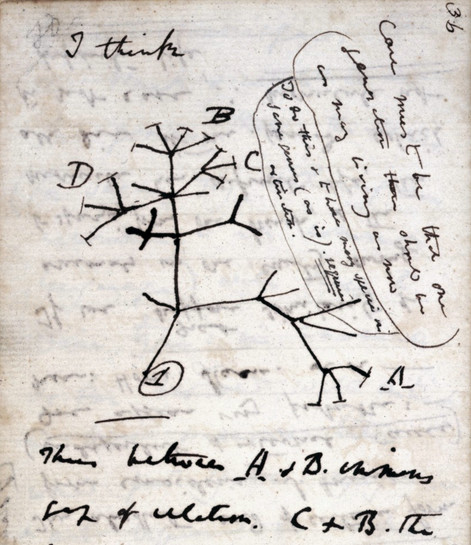 36
I think
Case must be that one
generation then should be
as many living as now
To do this & to have many species in
same genus (as is) requires
extinction.
B
D
C
A
1
Thus between A & B. immens
gap of relation. C & B. the